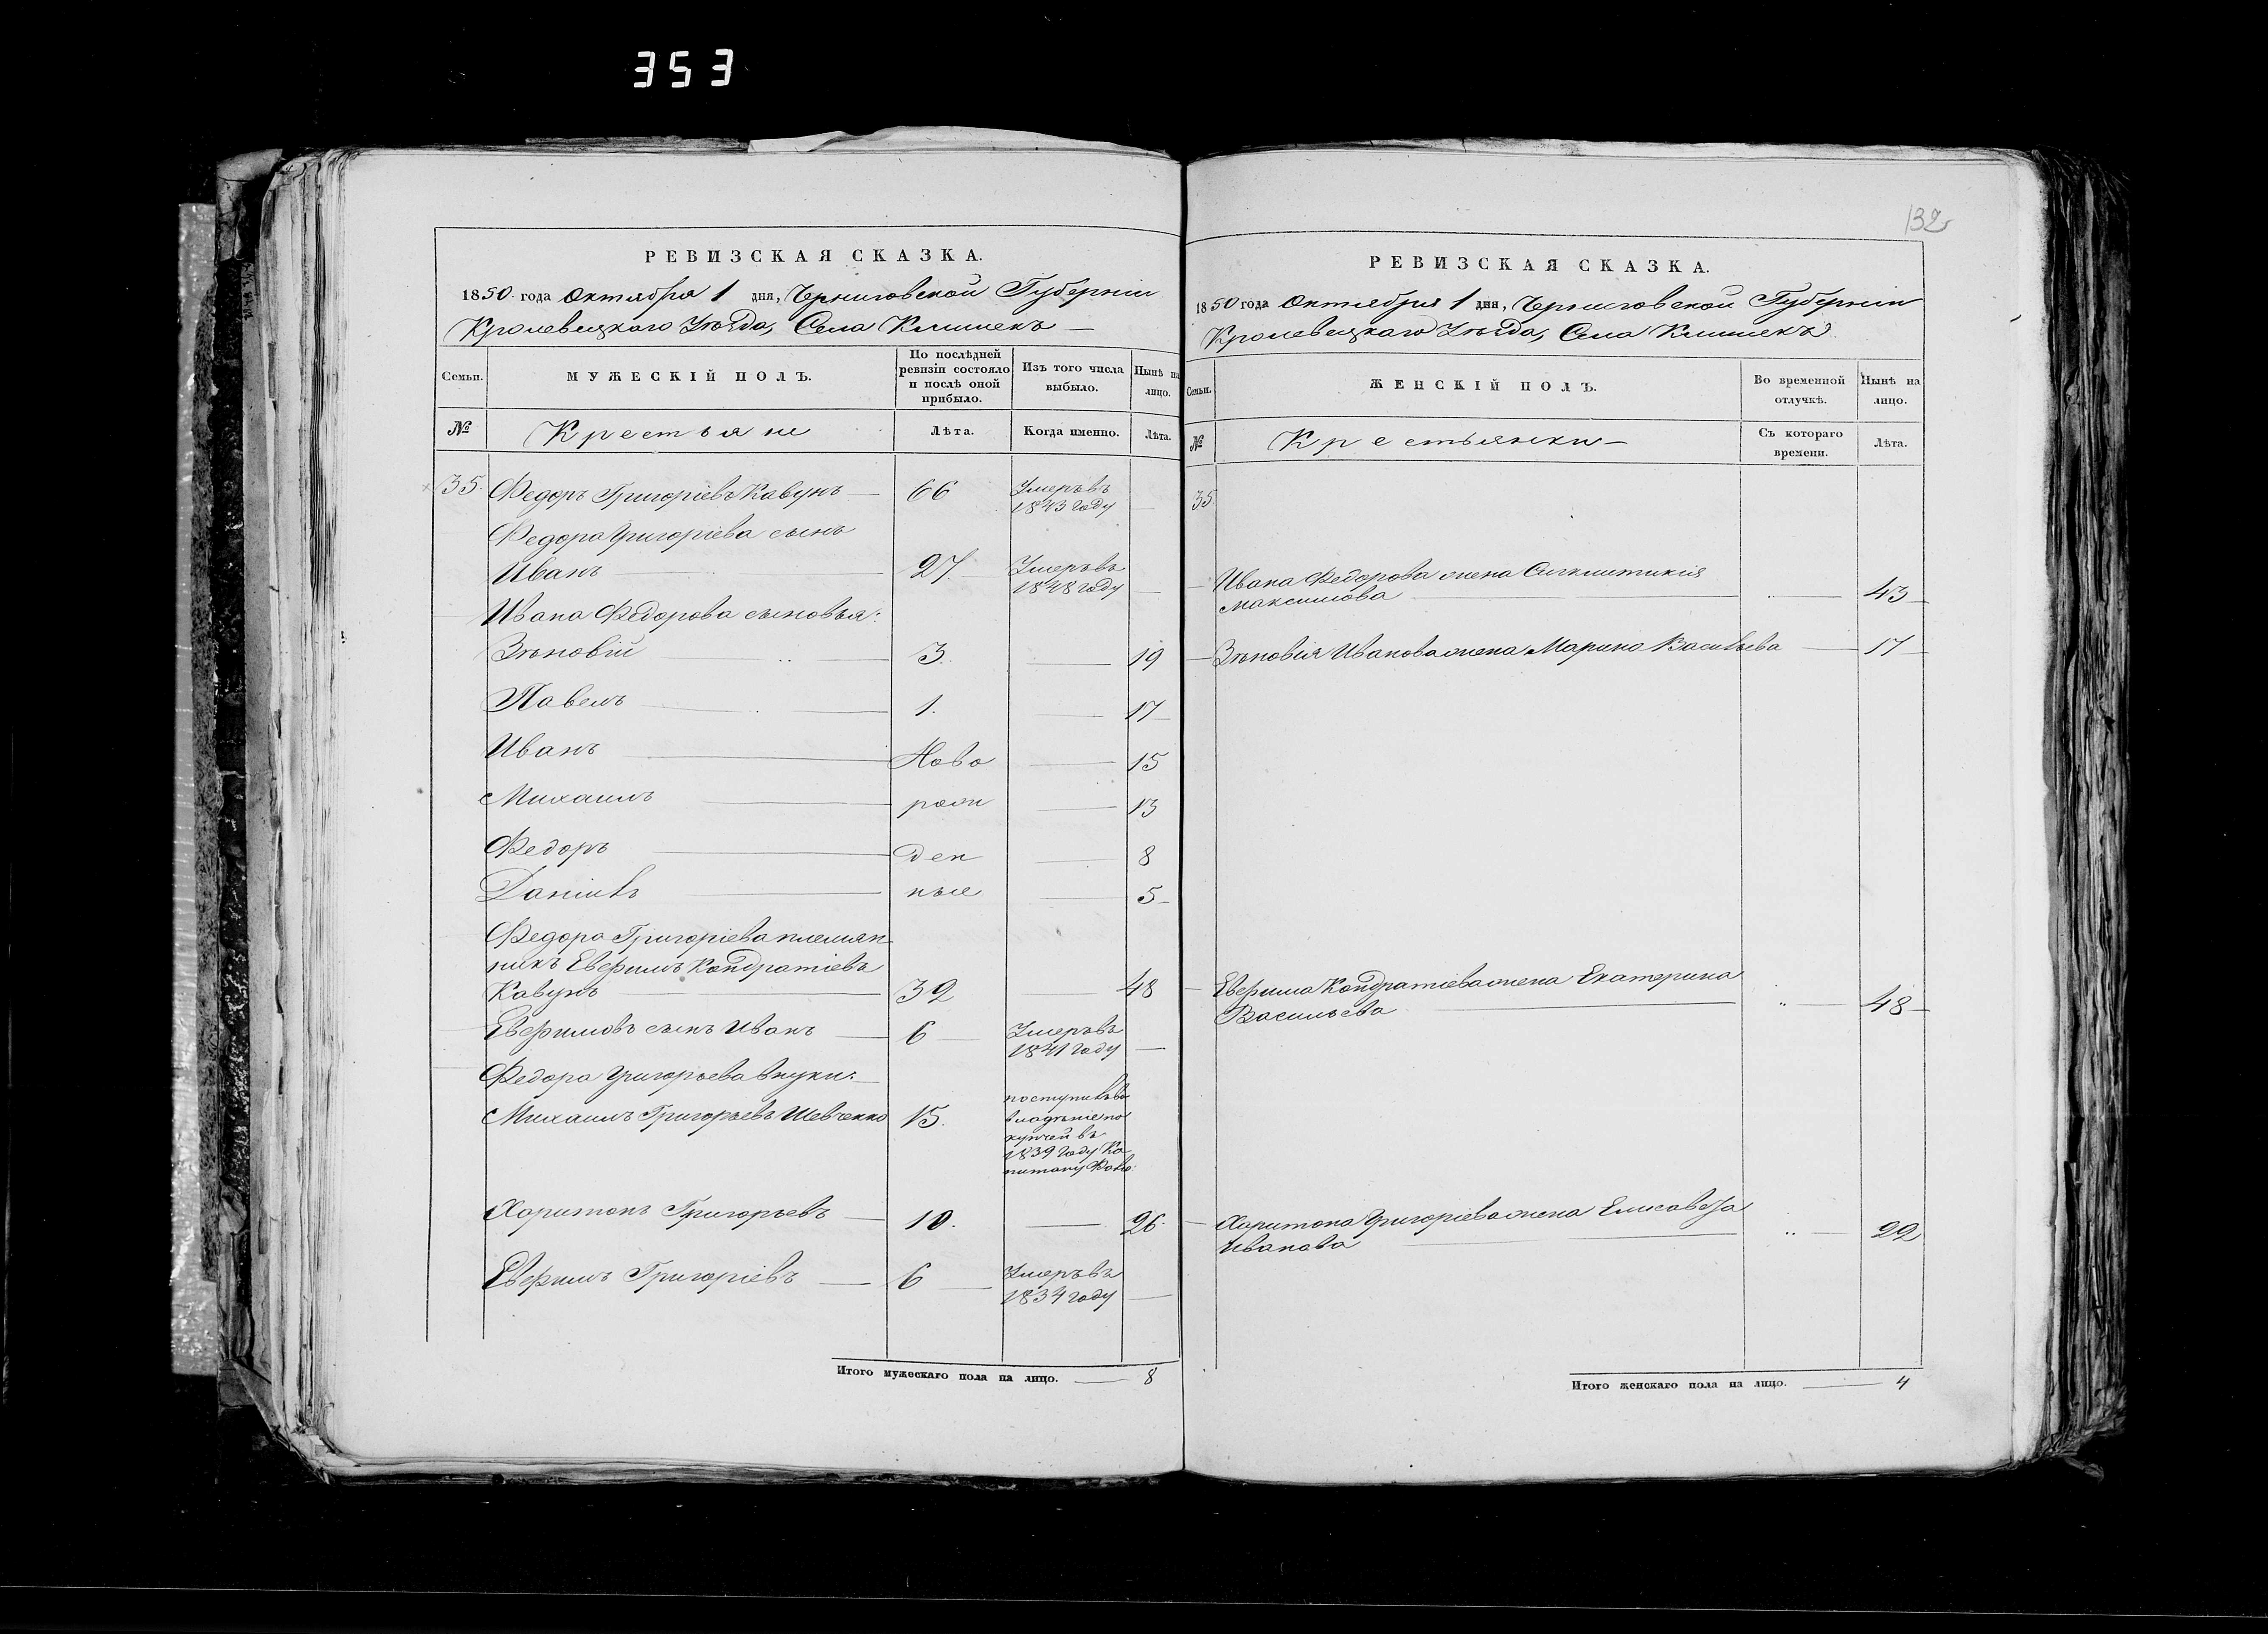 353
132
РЕВИЗСКАЯ СКАЗКА.
1850 года Октября 1 дня, Черниговской Губерніи
Кролевецкаго Уѣзда, Села Клишекъ
Семьи.
МУЖЕСКІЙ ПОЛЪ.
По послѣдней ревизіи состояло и послѣ оной прибыло.
Изъ того числа выбыло.
Нынѣ на лицо.
№
Крестьяне
Лѣта.
Когда именно.
Лѣта.
35. Федоръ Григоріевъ Кавунъ — 66 Умеръ въ 1843 году —
Федора Григоріева сынъ
Иванъ 27 Умеръ въ 1848 году —
Ивана Федорова сыновья:
Зѣновій 3 — 19
Павелъ 1. — 17
Иванъ Ново — 15
Михаилъ рож — 13
Федоръ ден — 8
Даніилъ ные — 5
Федора Григоріева племян-
никъ Евфимъ Кондратіевъ
Кавунъ 39 — 48
Евфимовъ сынъ Иванъ — 6 Умеръ въ 1841 году —
Федора Григорьева внуки:
Михаилъ Григорьевъ Шевченко 15. поступилъ во
владѣніе по
купчей въ
1839 году Ка-
питану
Харитонъ Григорьевъ — 10. — 26.
Евфимъ Григоріевъ — 6 Умеръ въ 1834 году —
Итого мужескаго пола на лицо. — 8
РЕВИЗСКАЯ СКАЗКА.
1850 года Октября 1 дня, Черниговской Губерніи
Кролевецкаго Уѣзда, Села Клишекъ
Семьи.
ЖЕНСКІЙ ПОЛЪ.
Во временной отлучкѣ.
Нынѣ на лицо.
№
Крестьянки
Съ котораго времени.
Лѣта.
35
Ивана Федорова жена
Максимова — 43
Зѣновія Иванова жена Марина Васильева — 17
Евфима Кондратіева жена Екатерина
Васильева — 48
Харитона Григоріева жена Елисавета
Иванова — 22
Итого женскаго пола на лицо. — 4